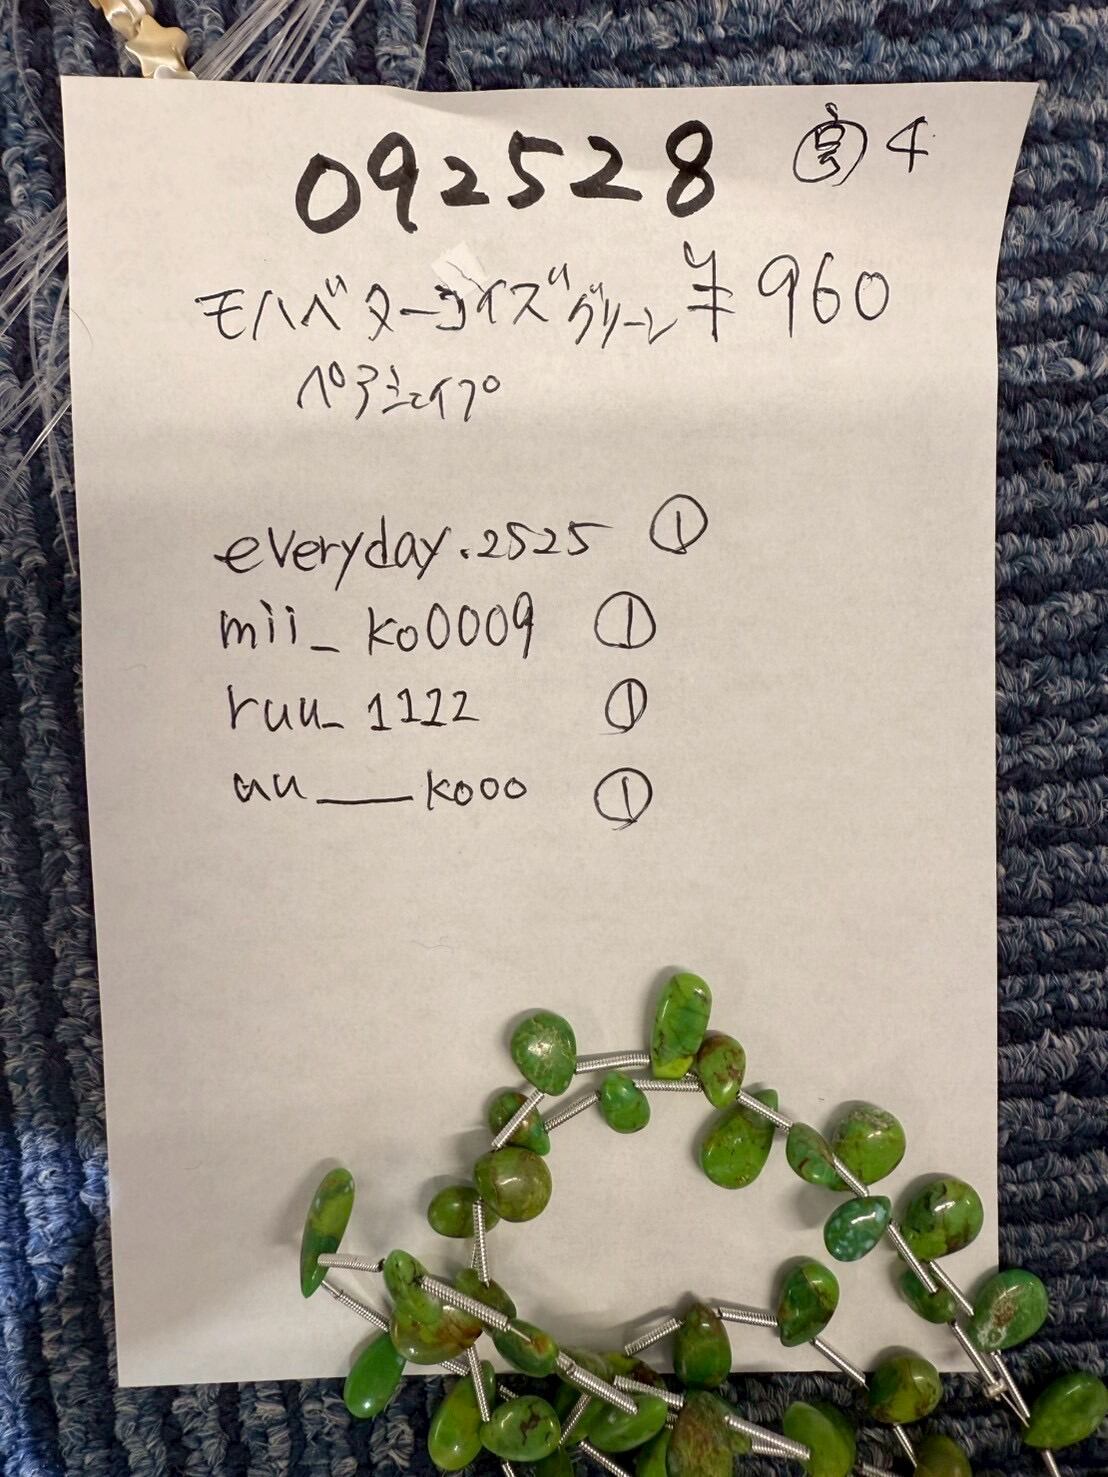 092528 4
モハベターコイズグリーン ¥960
ペアシェイプ
everyday.2525 ①
mii_ko0009 ①
ruu_1122 ①
uu___kooo ①